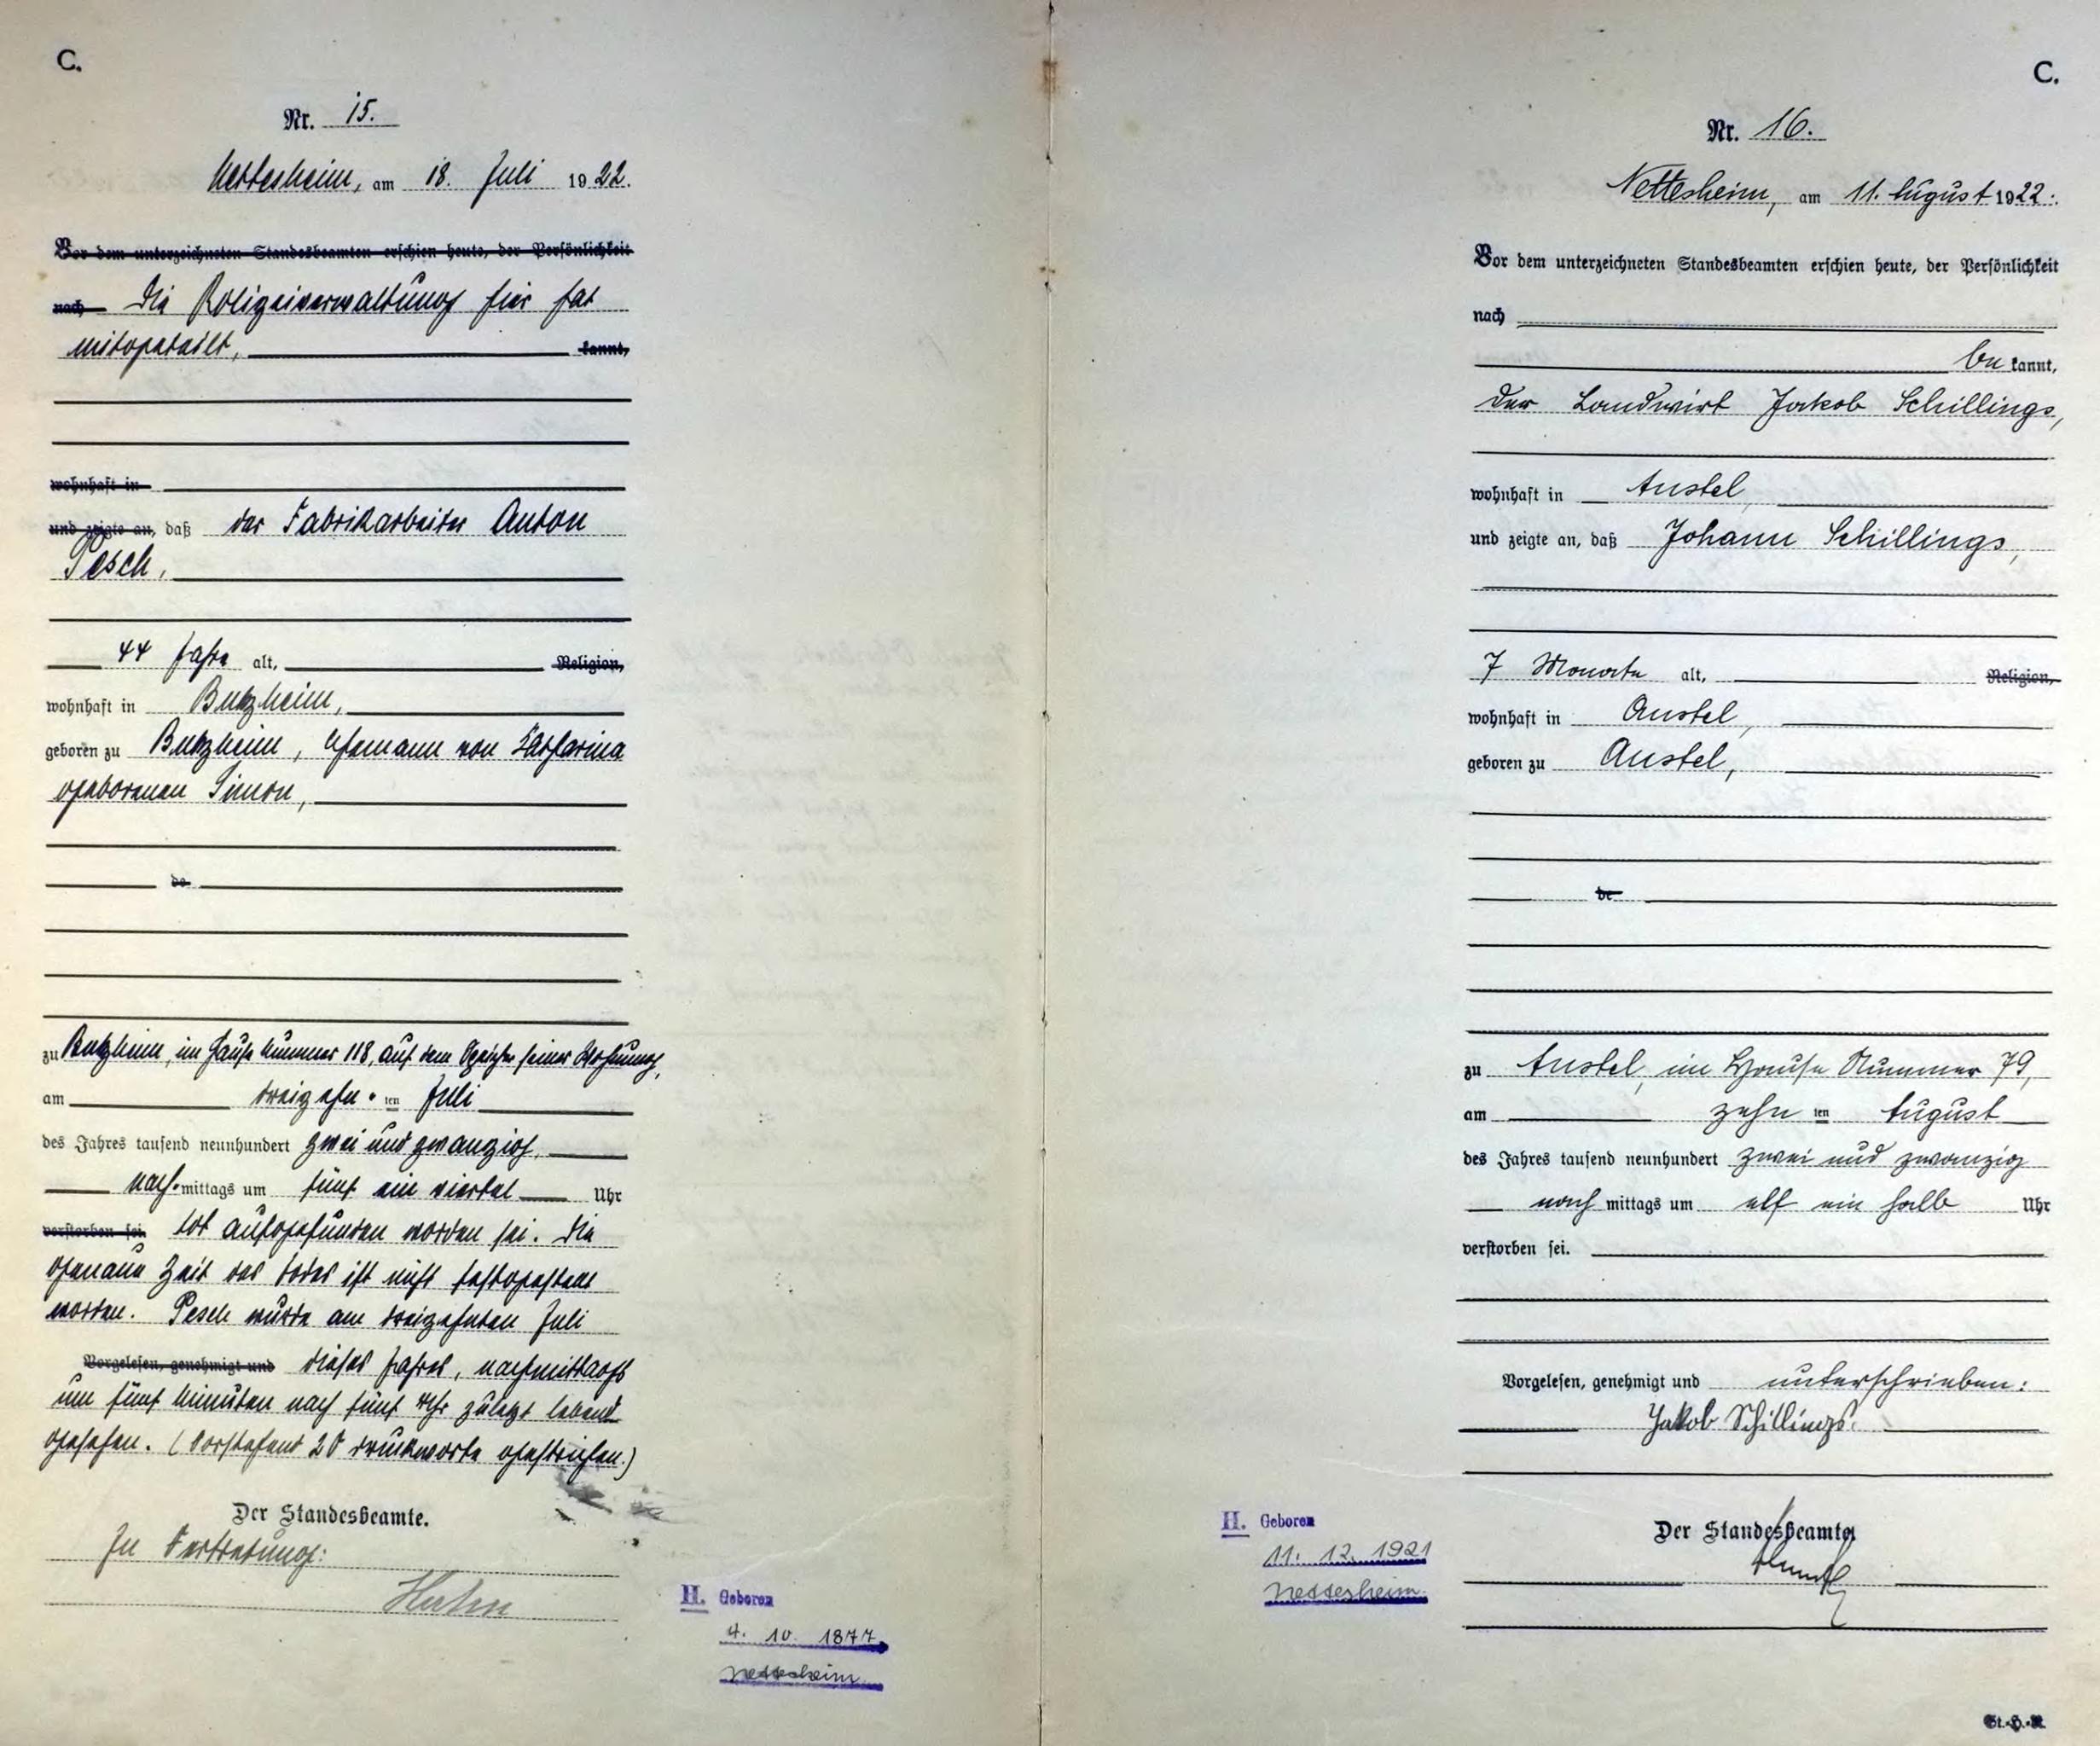 C.
Nr. 15.
Nettesheim, am 18. Juli 1922.
Vor dem unterzeichneten Standesbeamten erschien heute, der Persönlichkeit
nach Die Polizeiverwaltung hier hat
mitgeteilt, kannt,
wohnhaft in
und zeigte an, daß der Fabrikarbeiter Anton
Pesch,
44 Jahre alt, Religion,
wohnhaft in Butzheim,
geboren zu Butzheim, Ehemann von Katharina
geborenen Simon,
de
zu Butzheim, im Hause Nummer 118, auf dem Speicher seiner Wohnung,
am dreizehn ten Juli
des Jahres tausend neunhundert zwei und zwanzig,
nach mittags um fünf ein viertel Uhr
verstorben sei tot aufgefunden worden sei. Die
genaue Zeit des Todes ist nicht festgestellt
worden. Pesch wurde am dreizehnten Juli
Vorgelesen, genehmigt und dieses Jahres, nachmittags
um fünf Minuten nach fünf Uhr zuletzt lebend
gesehen. (Vorstehend 20 Druckworte gestrichen.)
Der Standesbeamte.
In Vertretung:
Hahn
H. Geboren
4. 10. 1877
Nettesheim
C.
Nr. 16.
Nettesheim, am 11. August 1922.
Vor dem unterzeichneten Standesbeamten erschien heute, der Persönlichkeit
nach
be kannt,
der Landwirt Jakob Schillings,
wohnhaft in Anstel
und zeigte an, daß Johann Schillings,
7 Monate alt, Religion,
wohnhaft in Anstel,
geboren zu Anstel,
de
zu Anstel, im Hause Nummer 79,
am zehn ten August
des Jahres tausend neunhundert zwei und zwanzig
nach mittags um elf ein halb Uhr
verstorben sei.
Vorgelesen, genehmigt und unterschrieben:
Jakob Schillings.
Der Standesbeamte
H. Geboren
11. 12. 1921
Nettesheim
St.-H.-R.